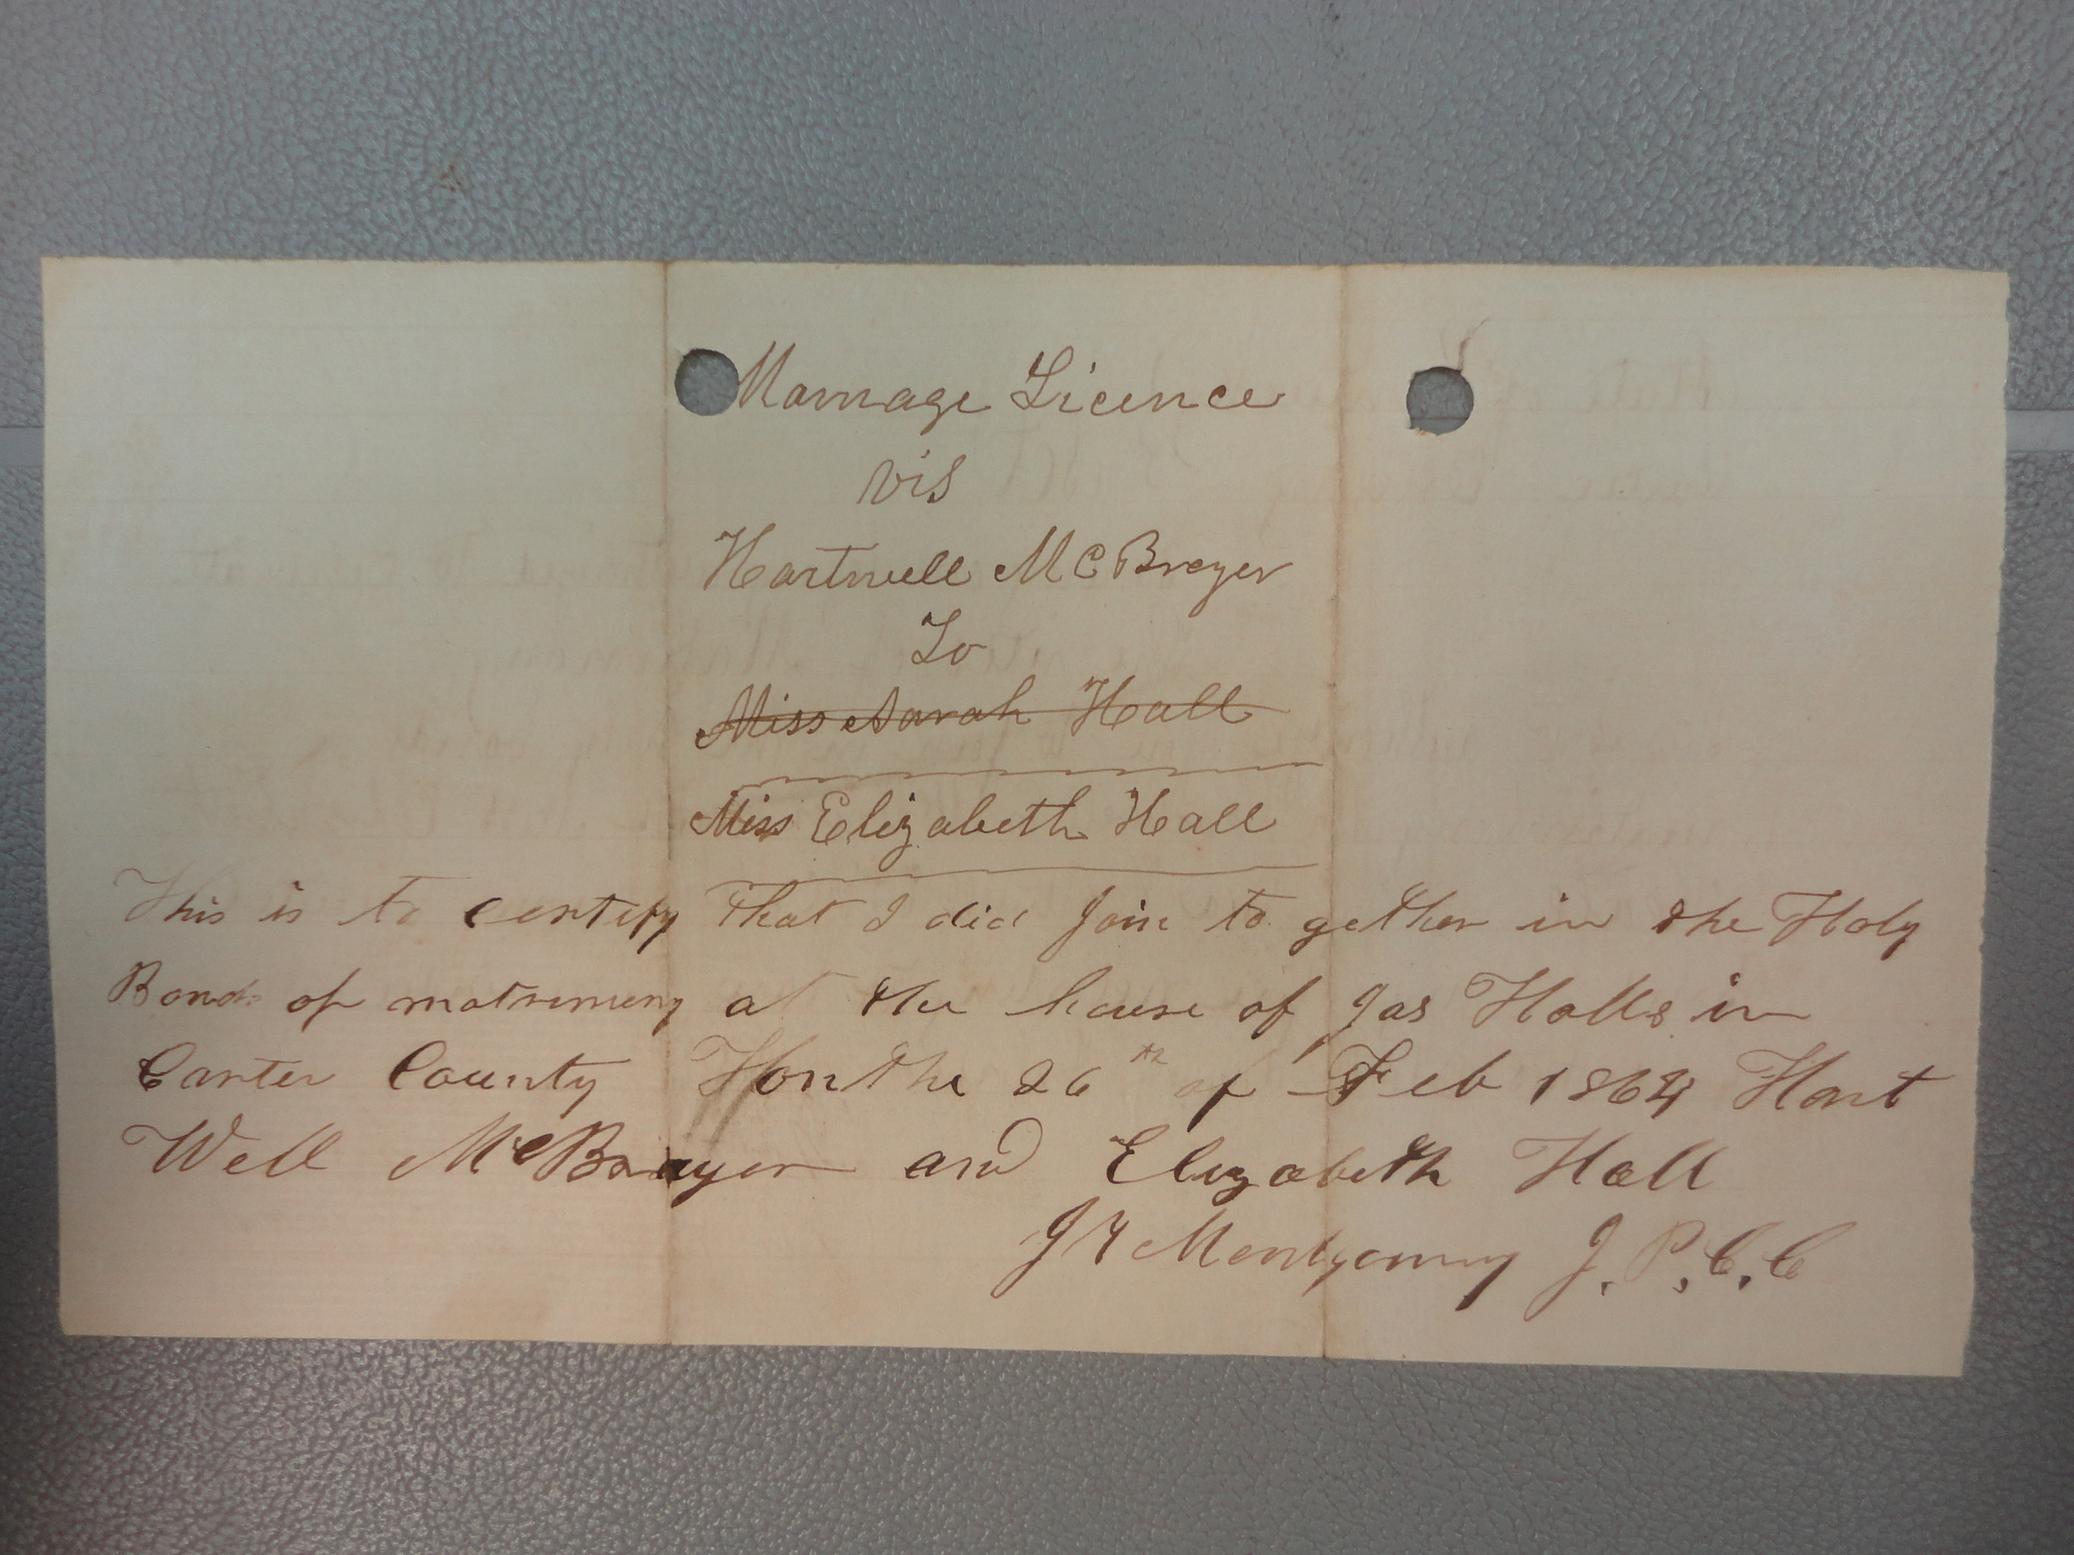 Marriage Licence
vis
Hartwell McBreyer
To
Miss Sarah Hall
Miss Elizabeth Hall
This is to certify That I did Join to gether in the Holy
Bonds of matrimony at the house of Jas Halls in
Carter County Ky on the 26th of Feb 1864 Hart
Well McBrayer and Elizabeth Hall
J Y Montgomery J. P. C. C